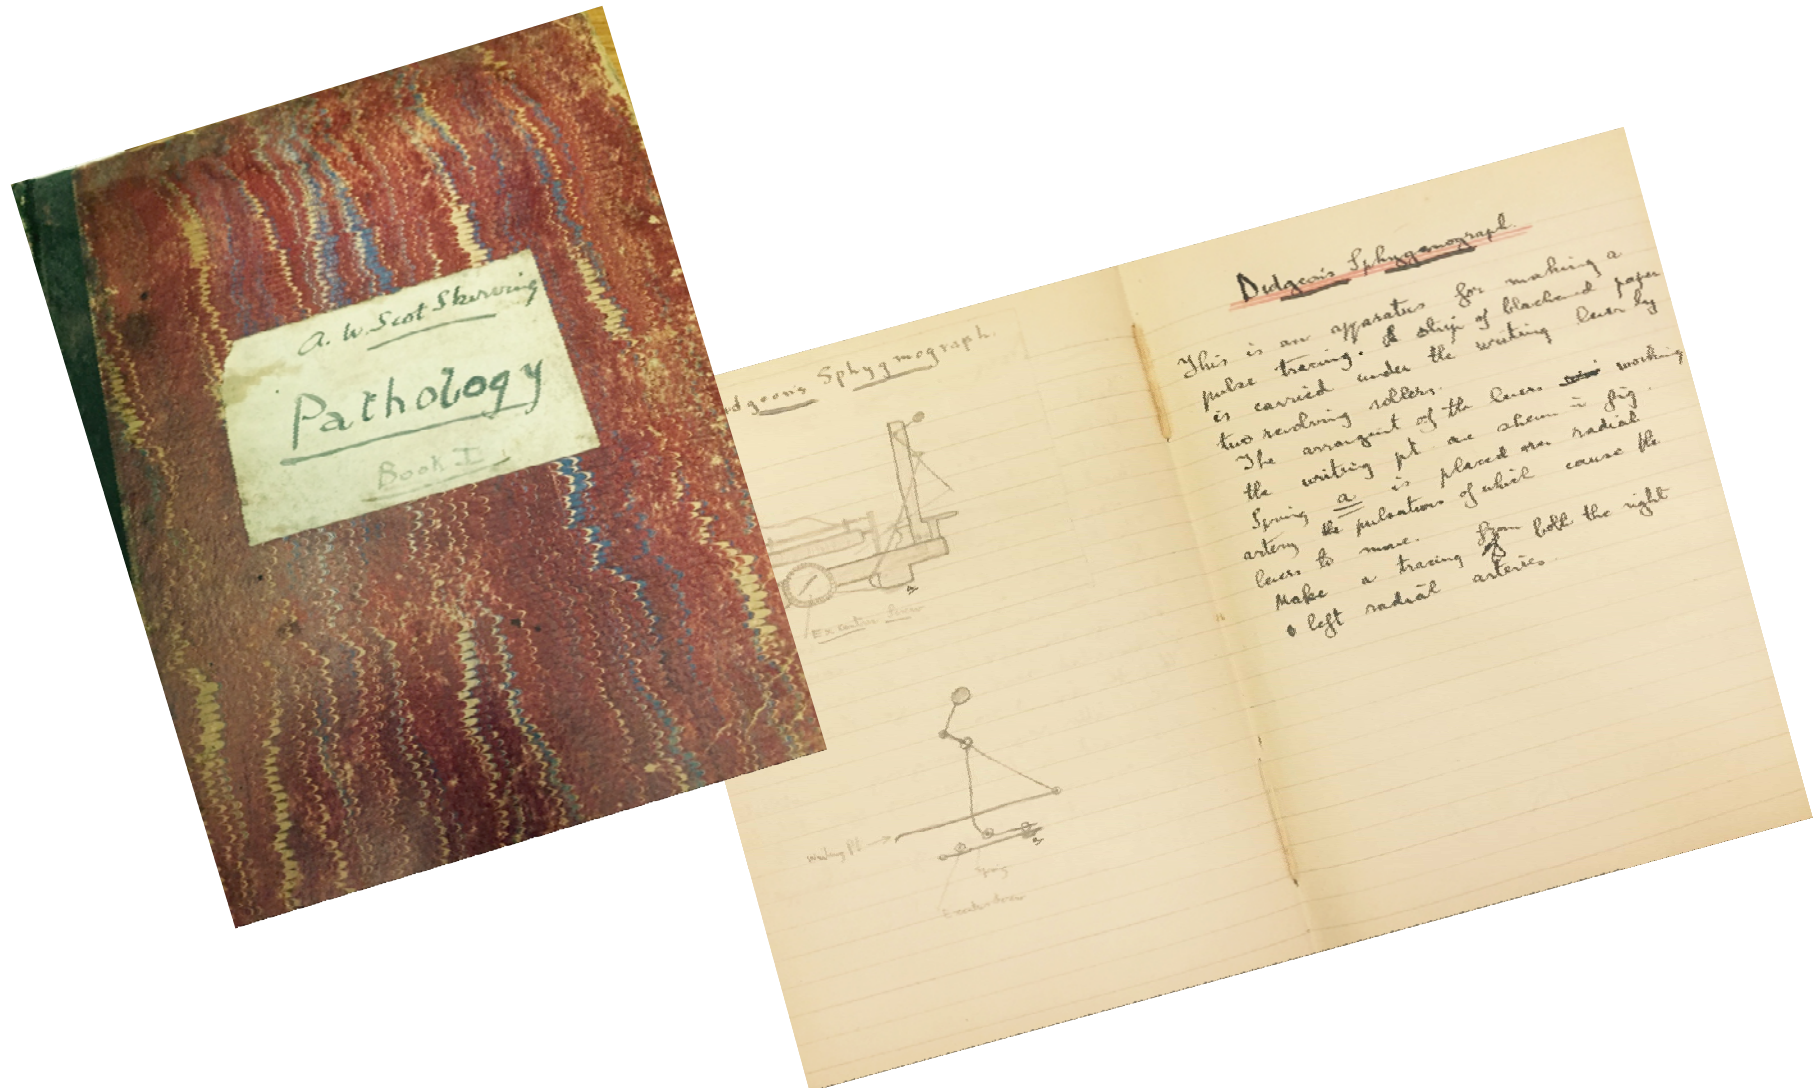 A. W. Scot Skirving
Pathology
Book I
dgeon's Sphygmograph.
Writing Pt
Spring
Dudgeon's Sphygmograph.
This is an apparatus for making a
pulse tracing. A strip of blackened paper
is carried under the writing lever by
two revolving rollers.
The arrangmt of the levers working
the writing pt. are shewn in fig.
Spring a is placed over radial
artery the pulsations of which cause the
levers to move.
Make a tracing from both the right
left radial arteries.